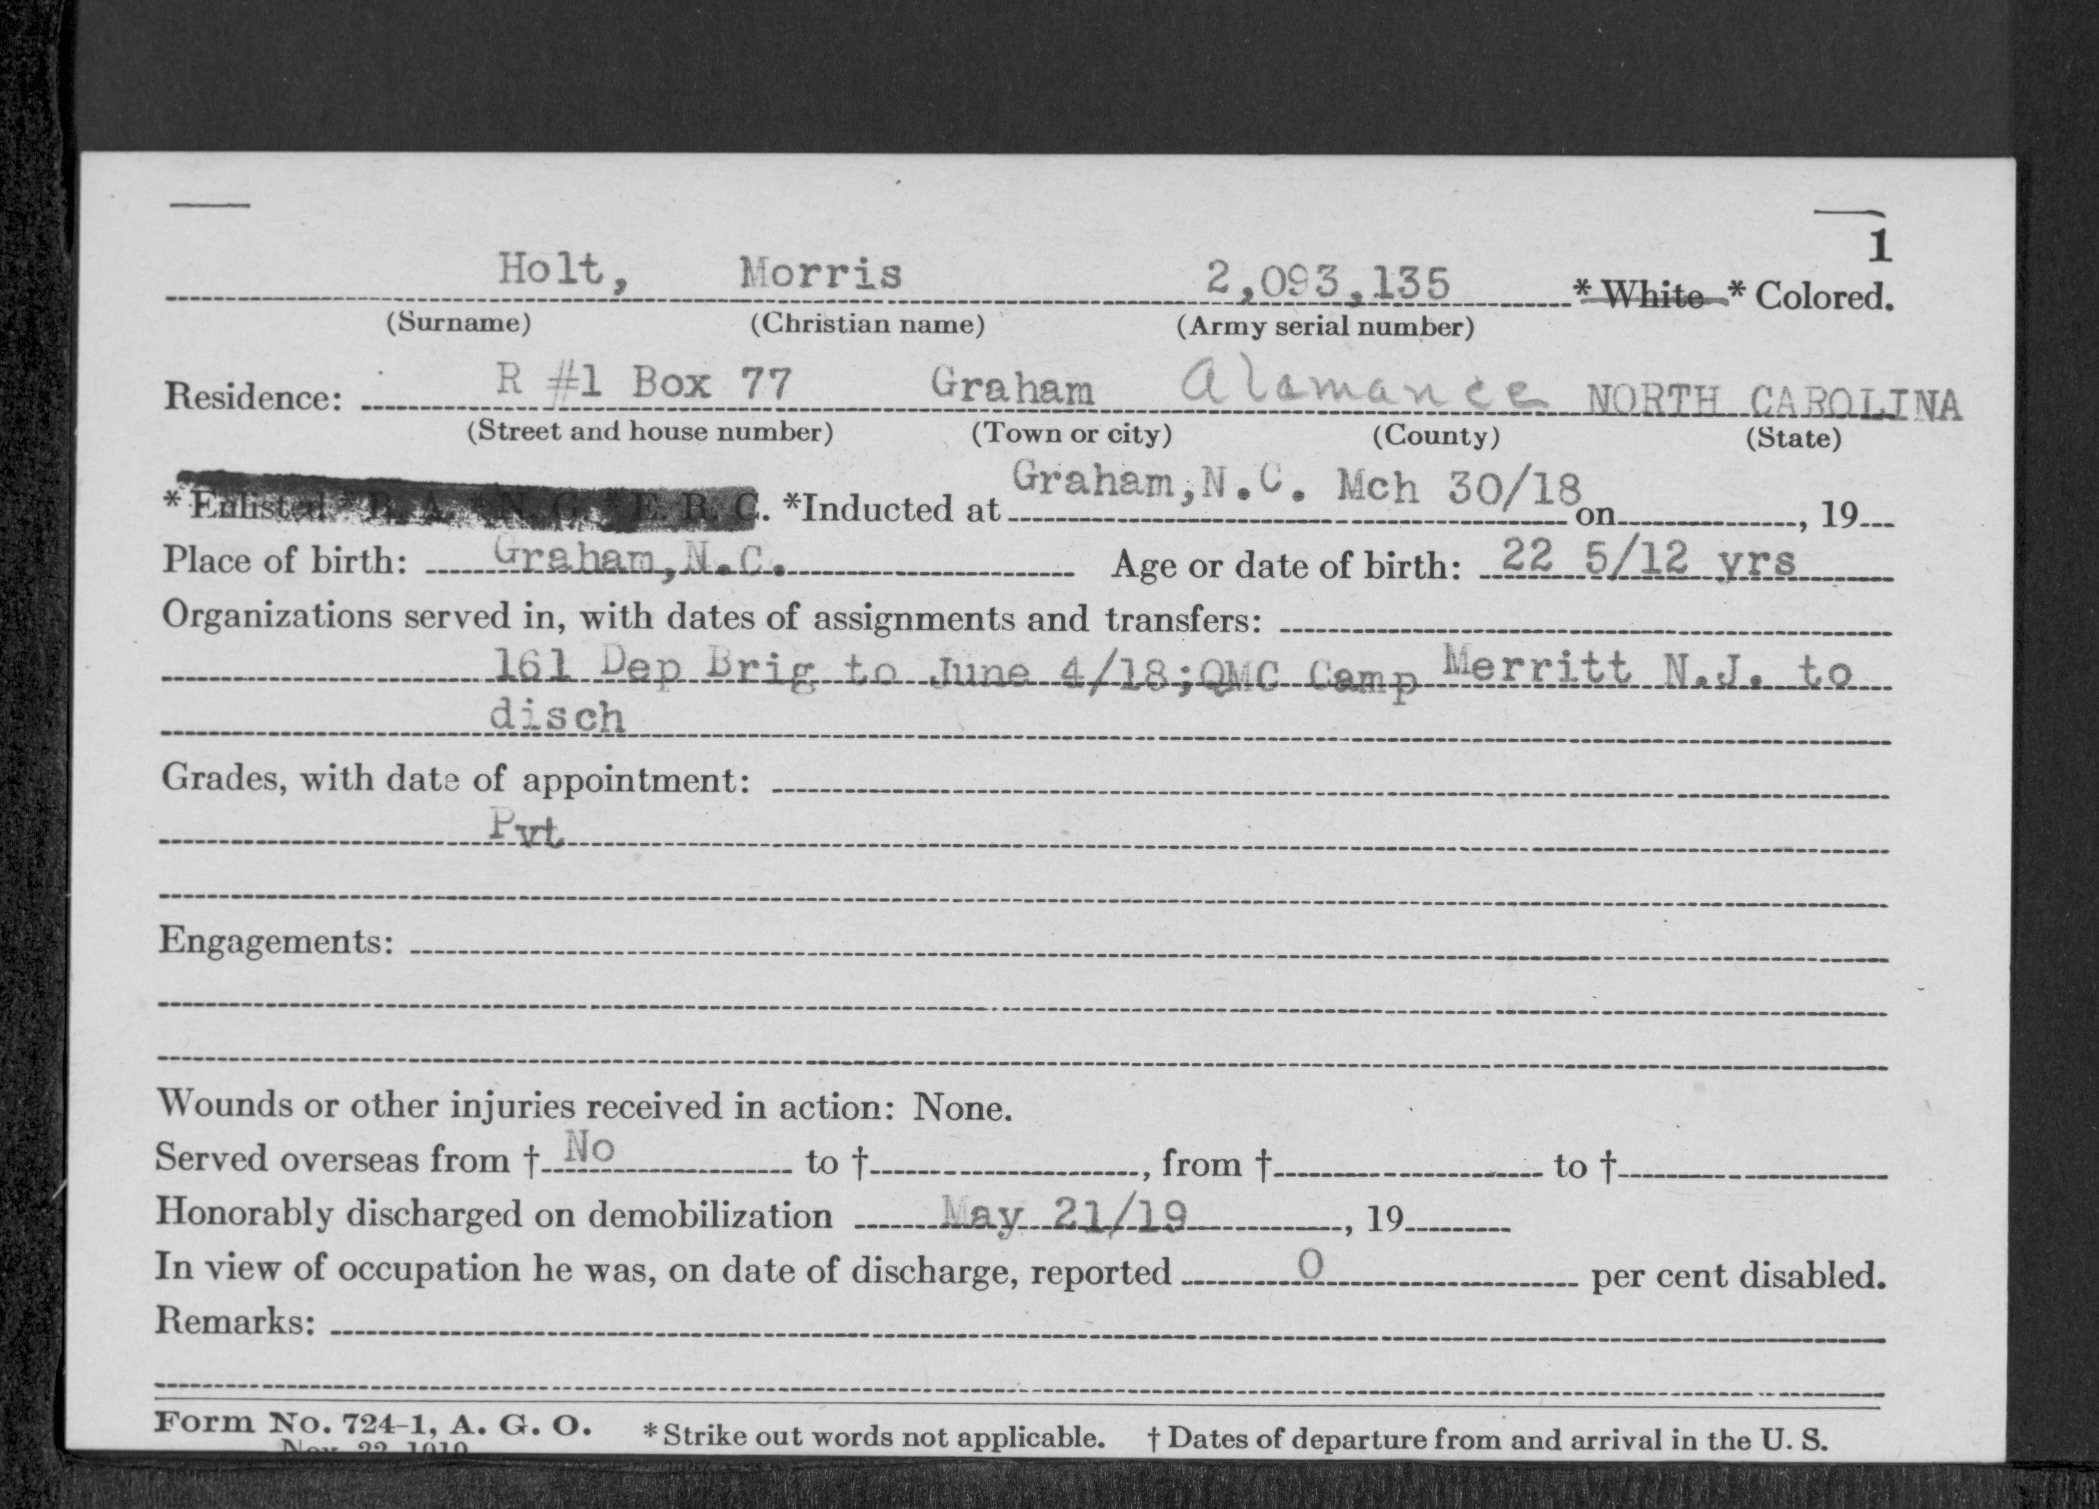 1
Holt, Morris 2,093,135 * White * Colored.
(Surname) (Christian name) (Army serial number)
Residence: R #1 Box 77 Graham Alamance NORTH CAROLINA
(Street and house number) (Town or city) (County) (State)
* Enlisted * R. A. * N. G. * E. R. C. *Inducted at Graham,N.C. Mch 30/18 on , 19
Place of birth: Graham,N.C. Age or date of birth: 22 5/12 yrs
Organizations served in, with dates of assignments and transfers:
161 Dep Brig to June 4/18;QMC Camp Merritt N.J. to
disch
Grades, with date of appointment:
Pvt
Engagements:
Wounds or other injuries received in action: None.
Served overseas from † No to † , from † to †
Honorably discharged on demobilization May 21/19 , 19
In view of occupation he was, on date of discharge, reported 0 per cent disabled.
Remarks:
Form No. 724-1, A. G. O. * Strike out words not applicable. † Dates of departure from and arrival in the U. S.
Nov. 22, 1919